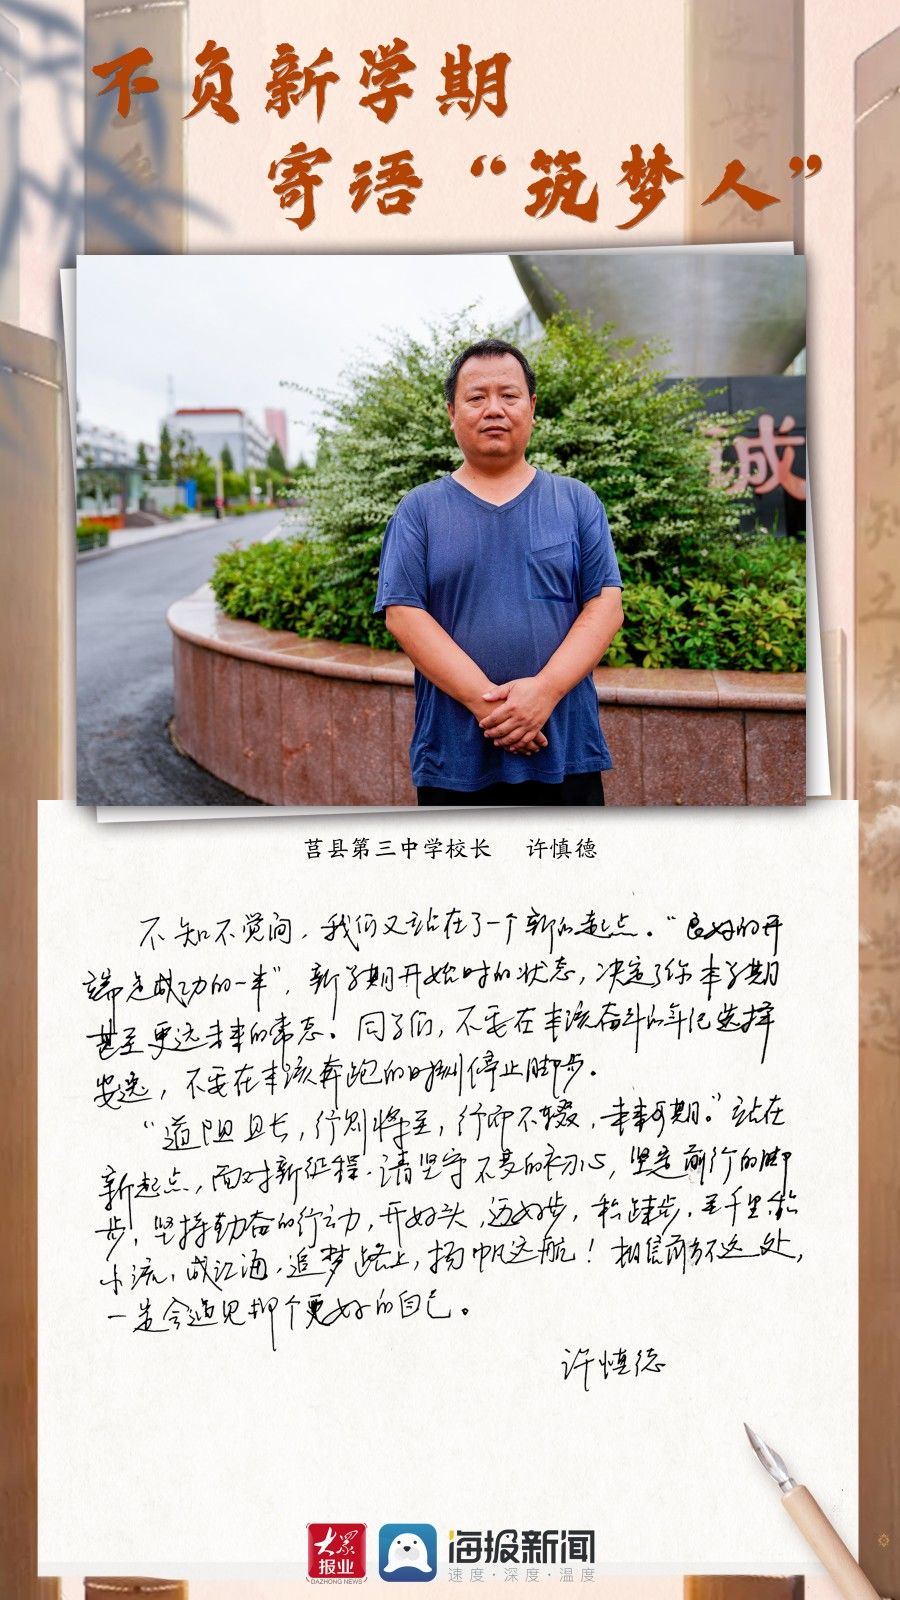 不负新学期
寄语“筑梦人”
诚
莒县第三中学校长 许慎德
不知不觉间，我们又站在了一个新的起点。“良好的开
端是成功的一半”，新学期开始时的状态，决定了你本学期
甚至更远未来的常态。同学们，不要在本该奋斗的年纪选择
安逸，不要在本该奔跑的时刻停止脚步。
“道阻且长，行则将至，行即不辍，未来可期。”站在
新起点，面对新征程，请坚守不变的初心，坚定前行的脚
步，坚持勤奋的行动，开好头，迈好步，积跬步，至千里，积
小流，成江海，追梦路上，扬帆远航！相信前方不远处，
一定会遇见那个更好的自己。
许慎德
大众
报业
DAZHONG NEWS
海报新闻
速度·深度·温度